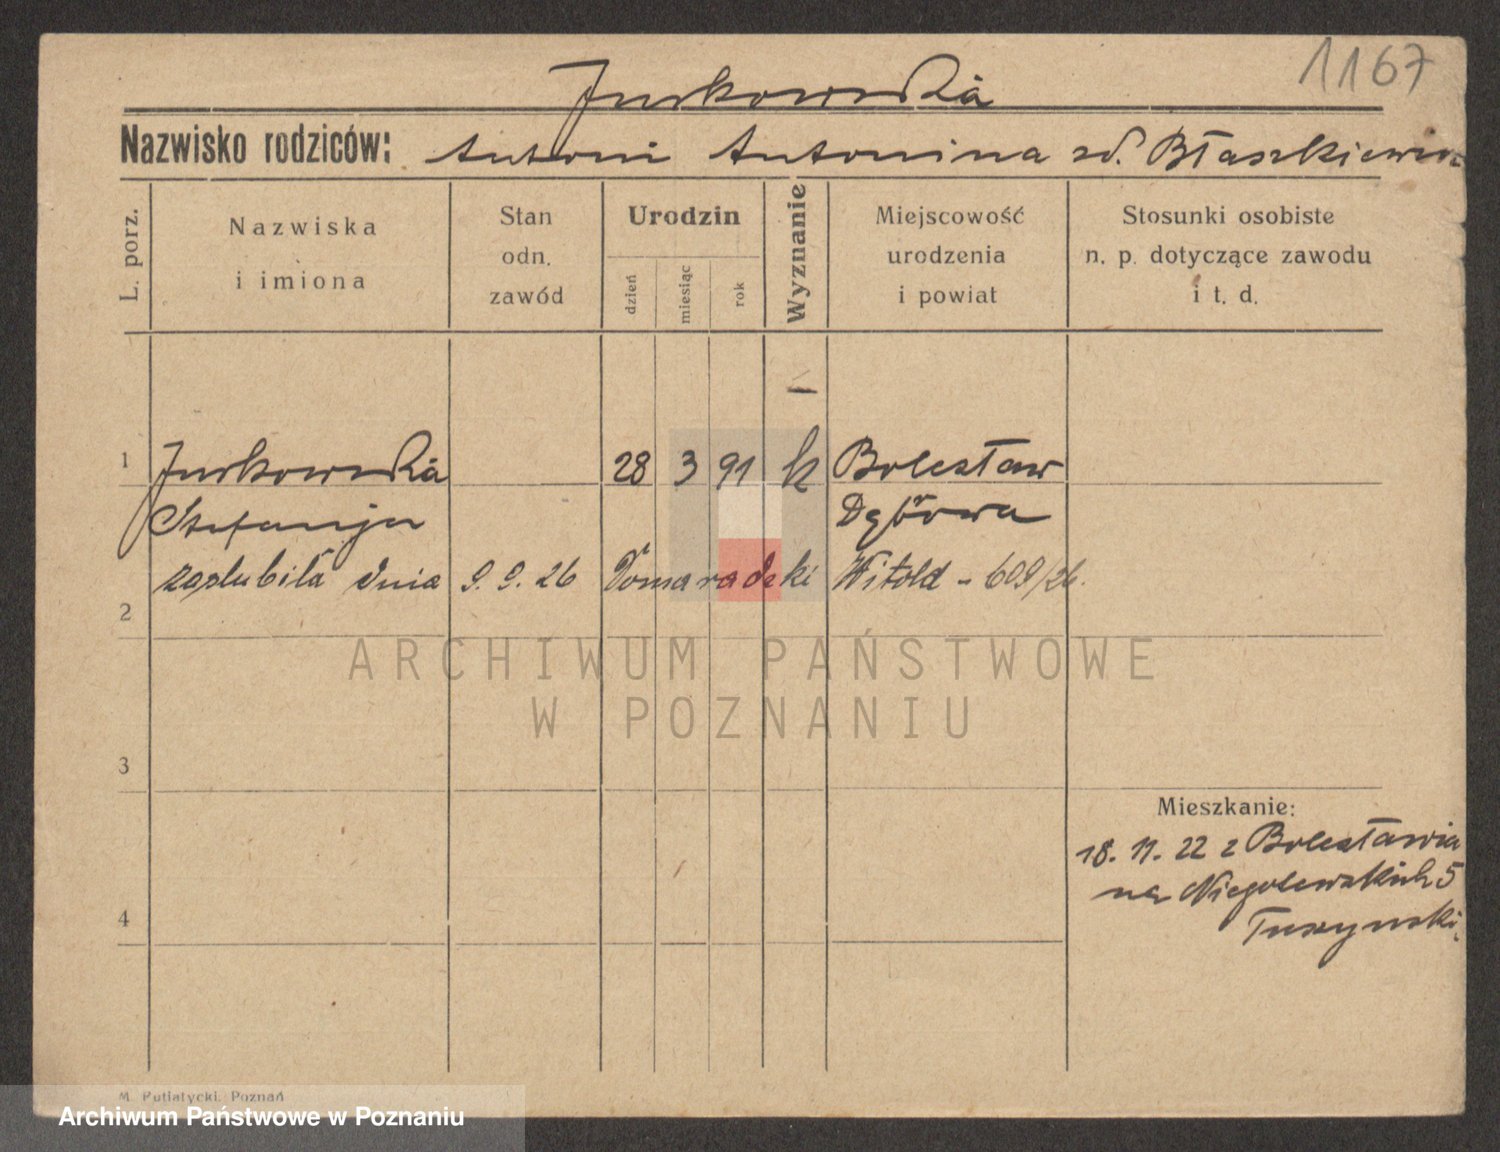 1167
Jurkowska
Nazwisko rodziców: Antoni Antonina zd. Błaszkiewicz
L. porz.
Nazwiska
i imiona
Stan
odn.
zawód
Urodzin
dzień
miesiąc
rok
Wyznanie
Miejscowość
urodzenia
i powiat
Stosunki osobiste
n. p. dotyczące zawodu
i t. d.
1 Jurkowska 28 3 91 k Bolesław
Stefanja Dąbrowa
zaślubiła dnia 9. 9. 26 Domaradzki Witold - 609/26.
2
ARCHIWUM PAŃSTWOWE
W POZNANIU
3
Mieszkanie:
18. 11. 22 z Bolesławia
na Niegolewskich 5
4
M. Putiatycki, Poznań
Archiwum Państwowe w Poznaniu